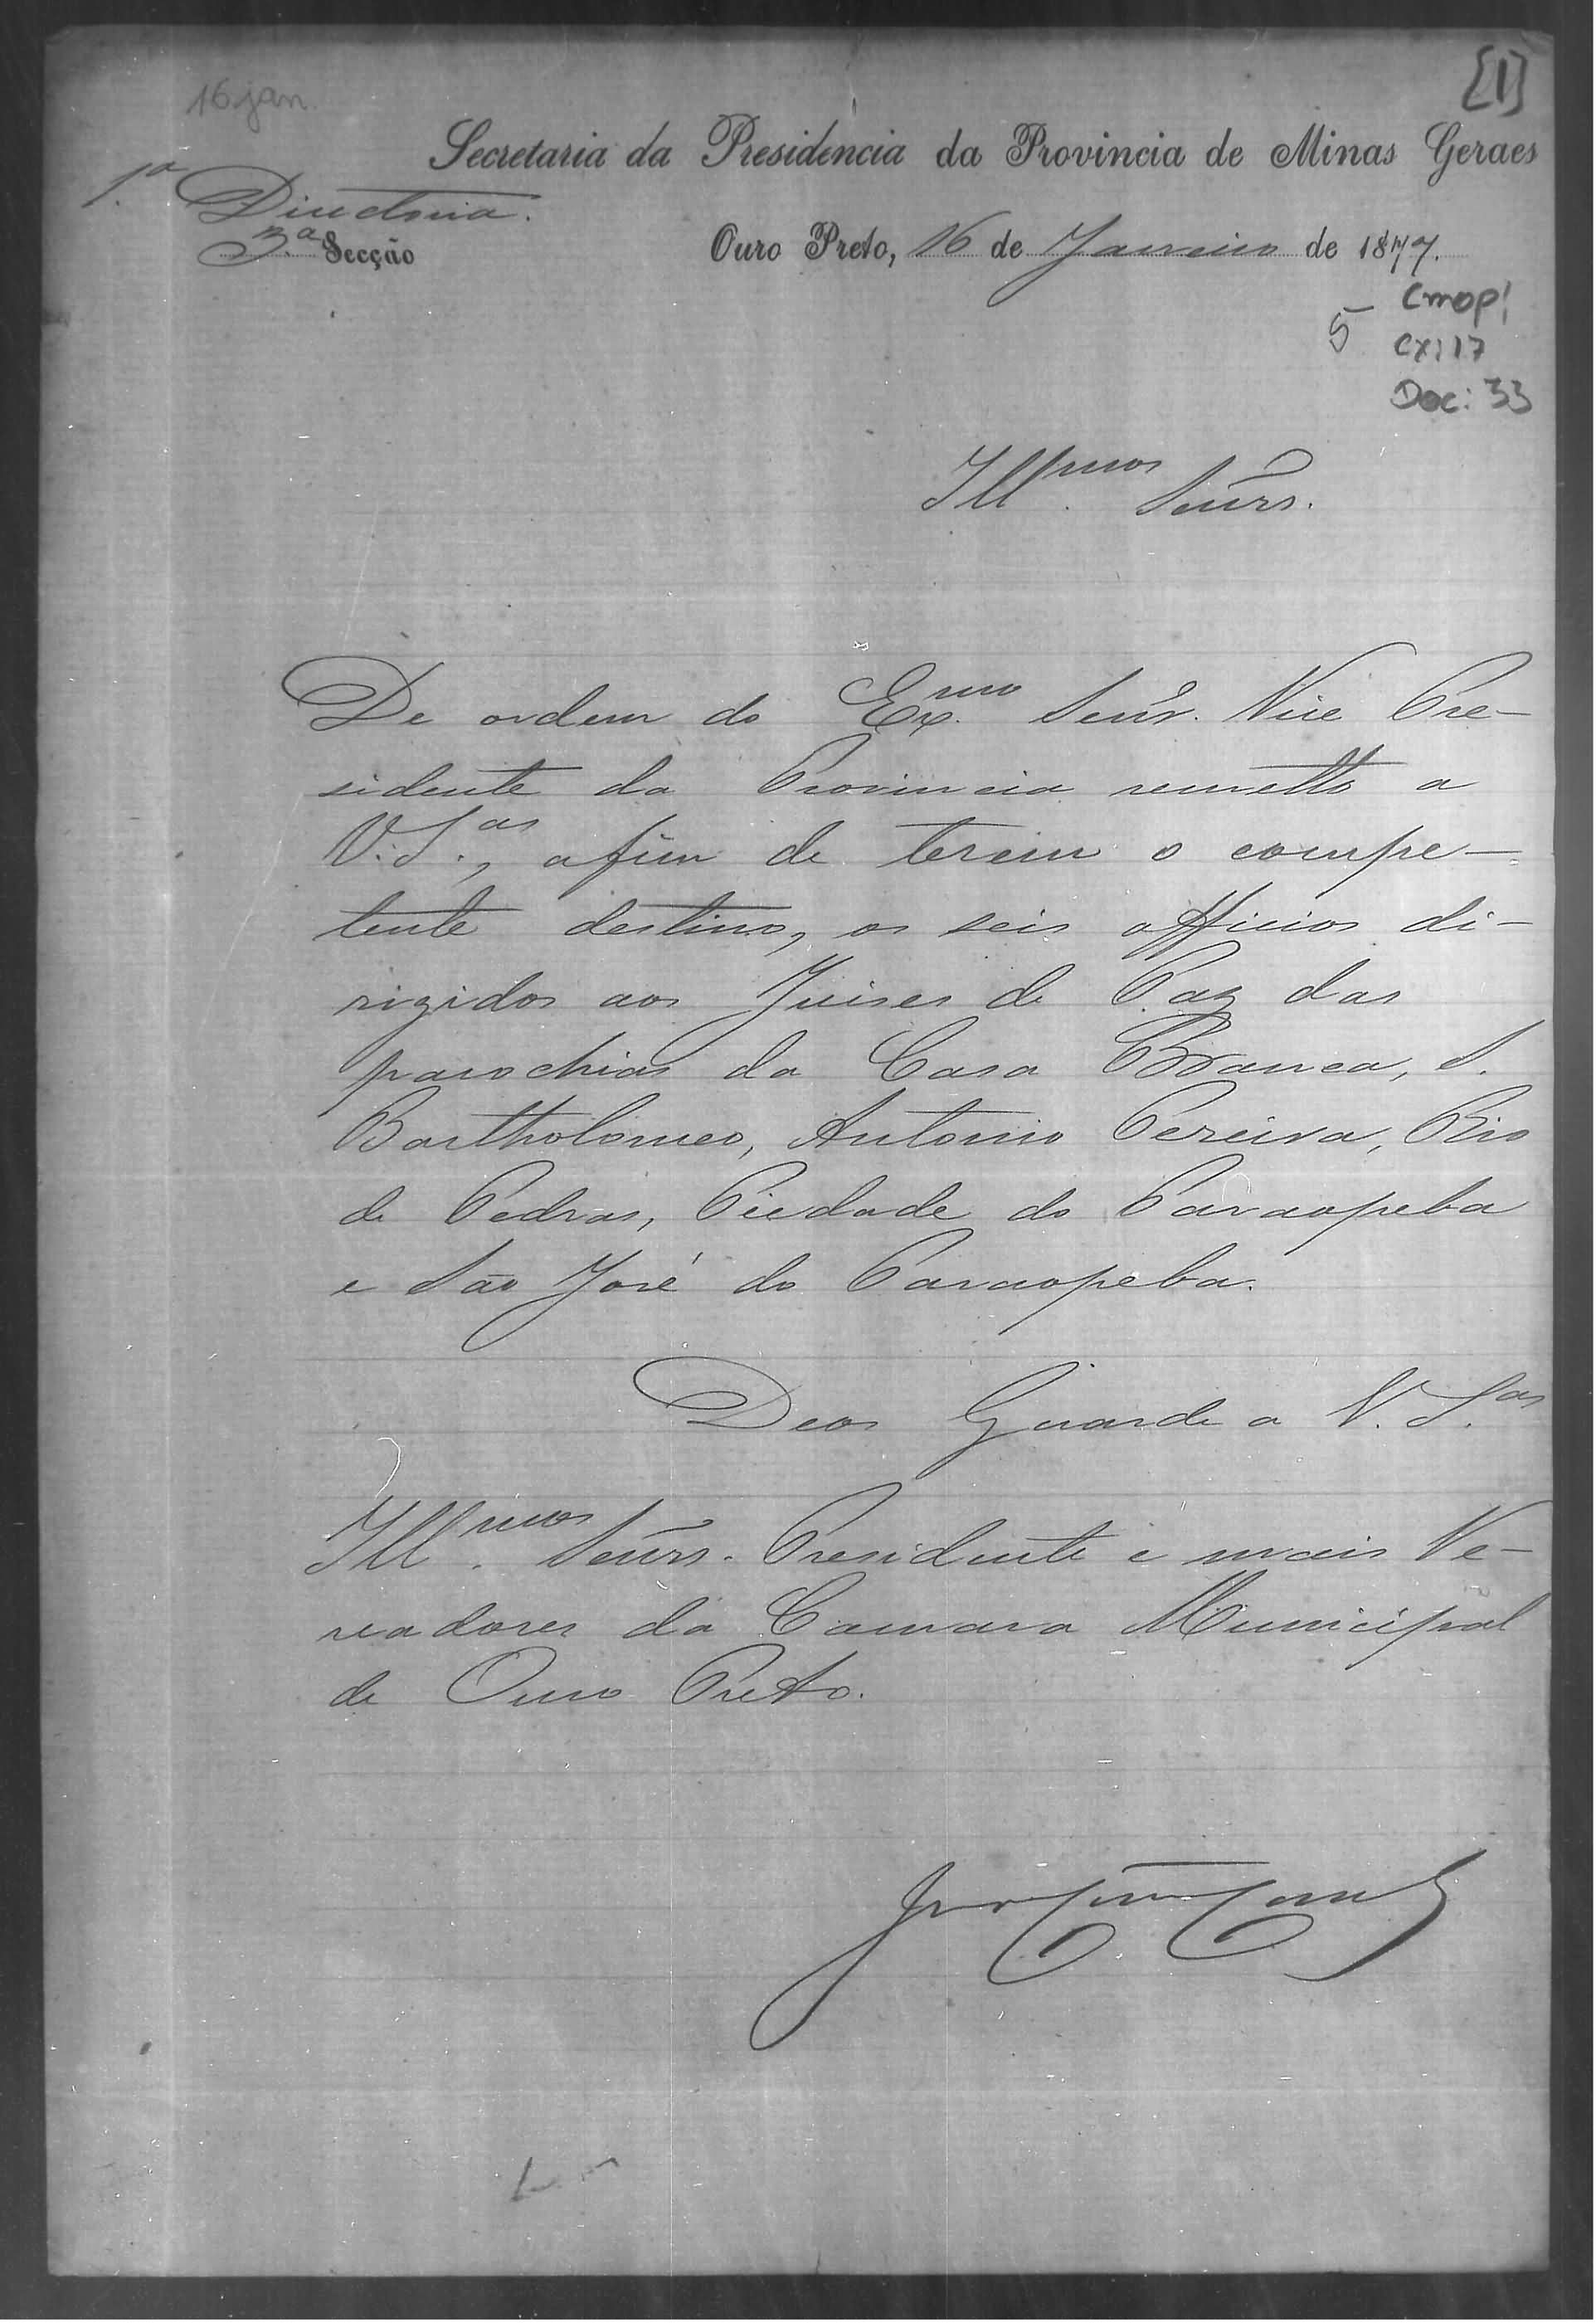 [1]
16 jan.
Secretaria da Presidencia da Provincia de Minas Geraes
1.ª Directoria.
3.ª Secção
Ouro Preto, 16 de Janeiro de 1877.
Cmop:
5 Cx: 17
Doc: 33
Illmos. Senrs.
De ordem do Exmo. Senr. Vice Pre-
sidente da Provincia remetto a
V. S.as, afim de terem o compe-
tente destino, os seis officios di-
rigidos aos Juises de Paz das
parochias da Casa Branca, S.
Bartholomeo, Antonio Pereira, Rio
de Pedras, Piedade do Paraopeba
e São José do Paraopeba.
Deos Guarde a V. S.as
Illmos. Senrs. Presidente e mais Ve-
readores da Camara Municipal
de Ouro Preto.